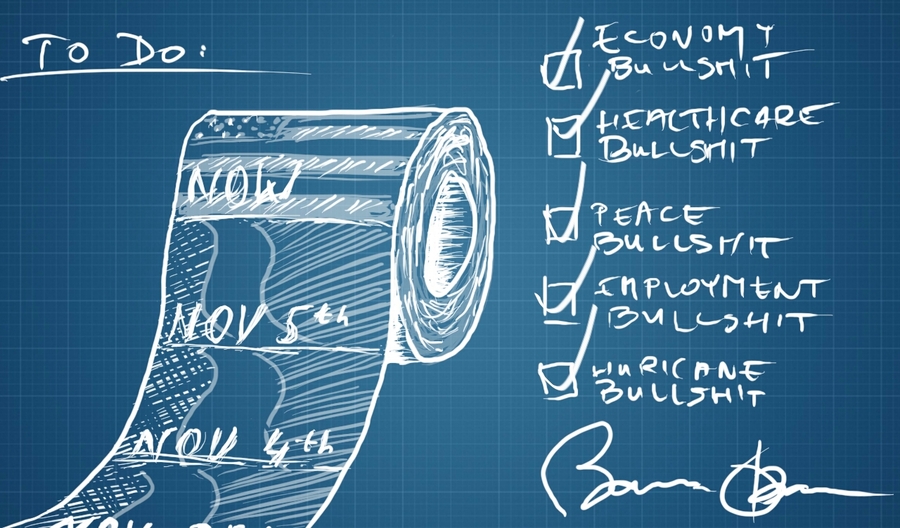 To Do:
NOW
NOV 5th
NOV 4th
NOV
ECONOMY
BULLSHIT
HEALTHCARE
BULLSHIT
PEACE
BULLSHIT
EMPLOYMENT
BULLSHIT
HURICANE
BULLSHIT